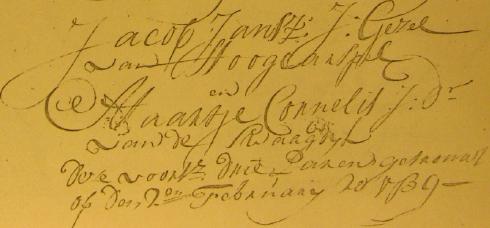 Jacob Jansz: J: Gezel
van Hoogcarspel
en
Maartje Cornelis J: Dr
van de Kraagdyk
Deze voorsz. drie Paaren getrouwt
op den 2en Februarij Ao 1739